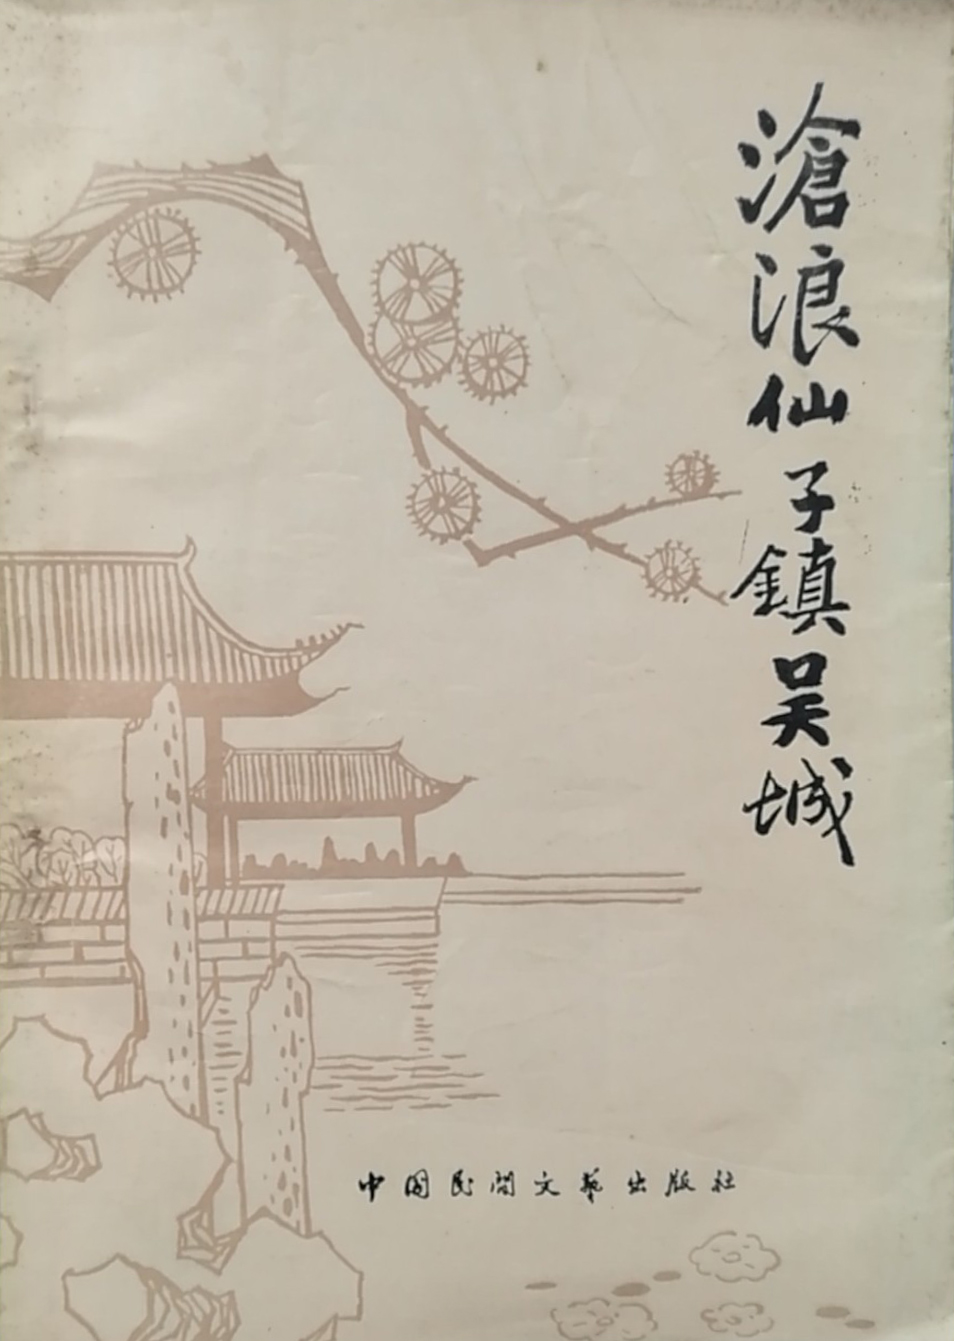 滄浪仙子鎮吴城
中国民间文艺出版社